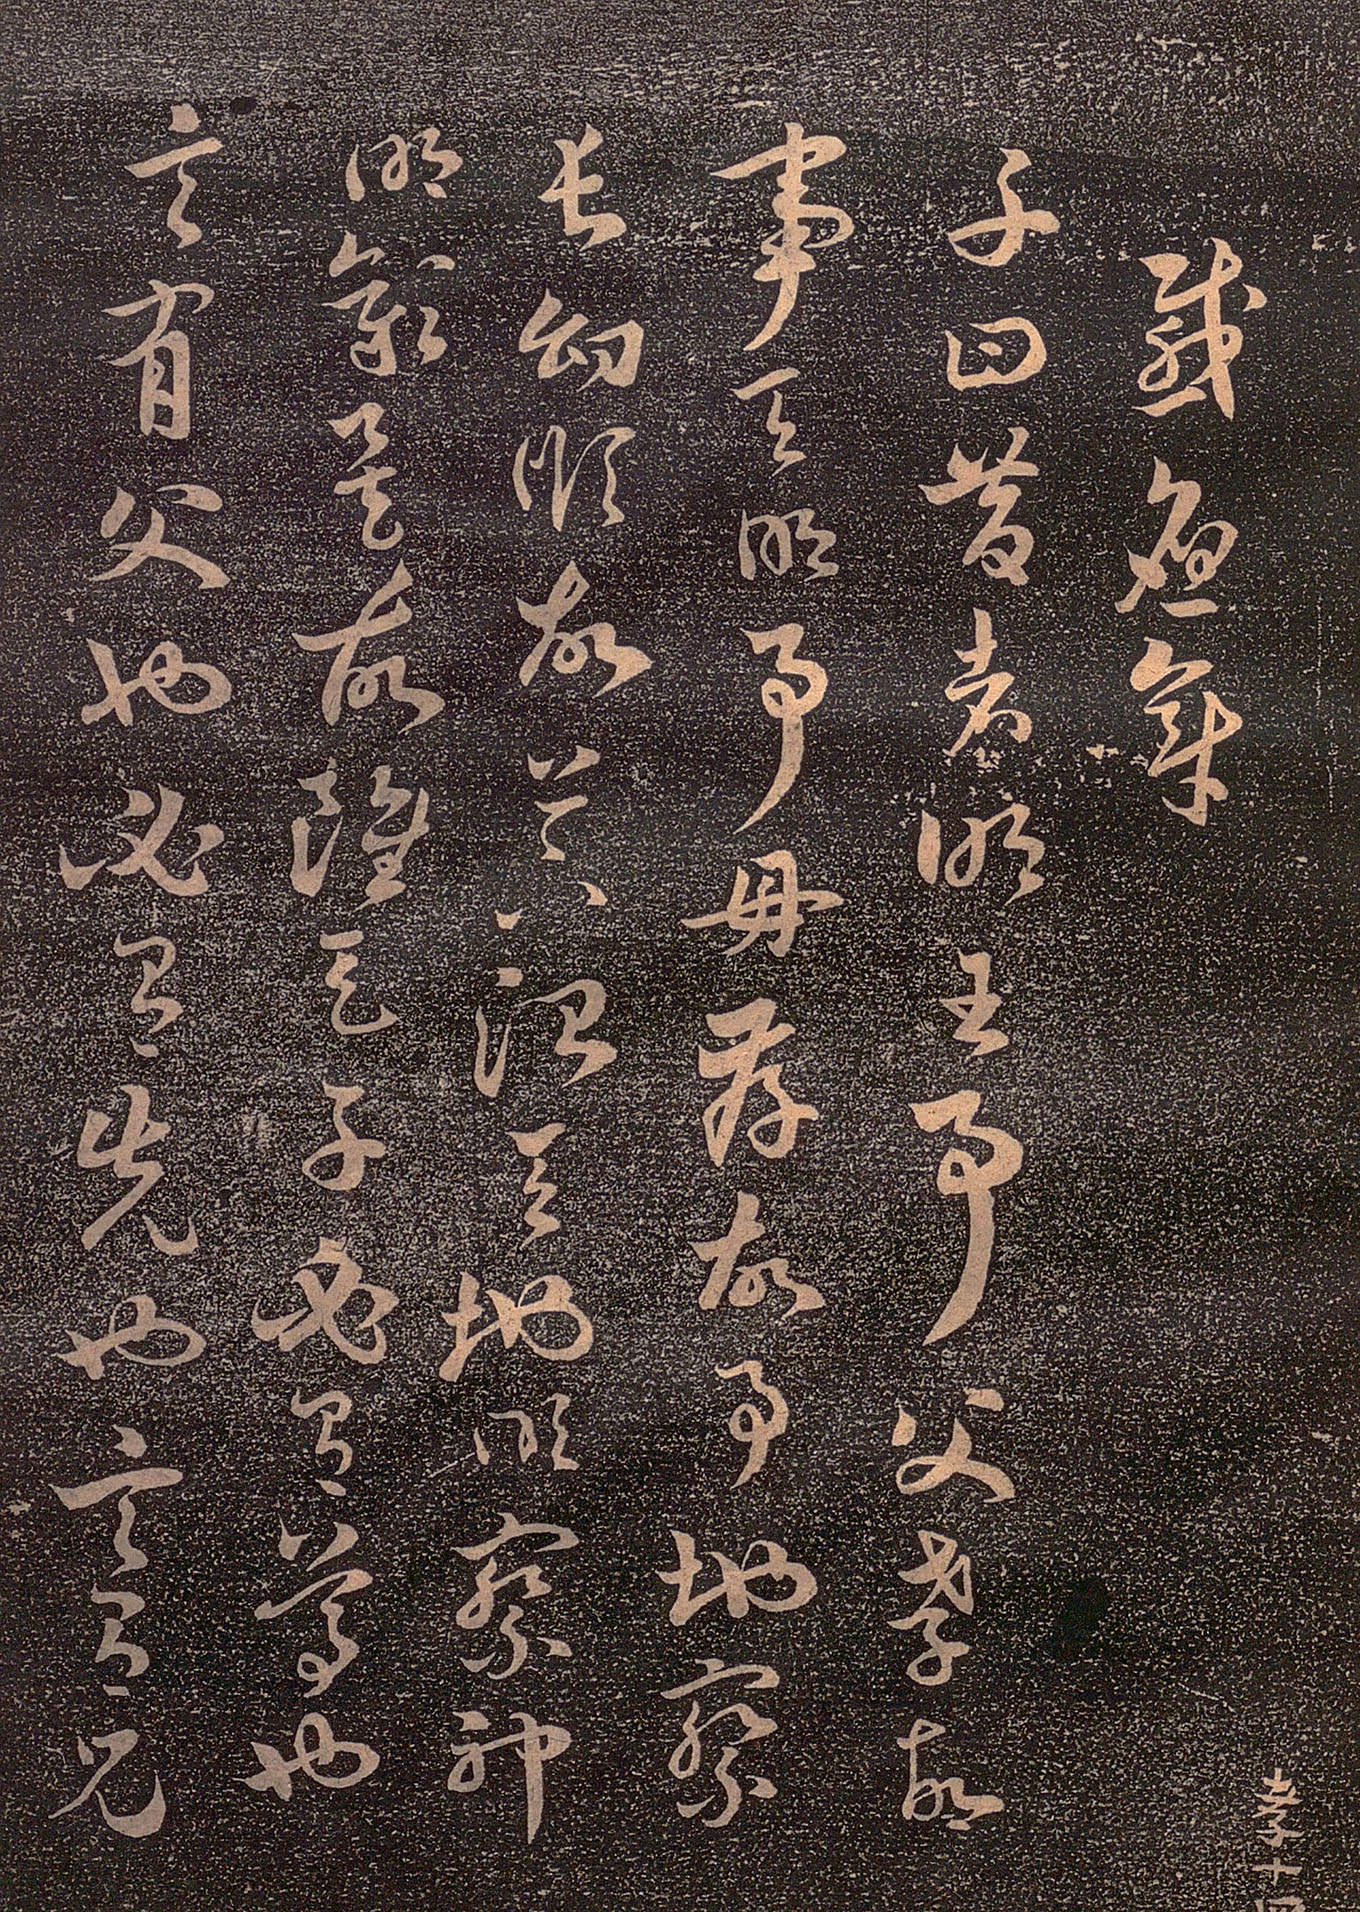 感應章
子曰昔者明王事父孝故
事天明事母孝故事地察
長幼順故上下治天地明察神
明彰是故雖天子必有尊也
言有父也必有先也言有兄
孝十四